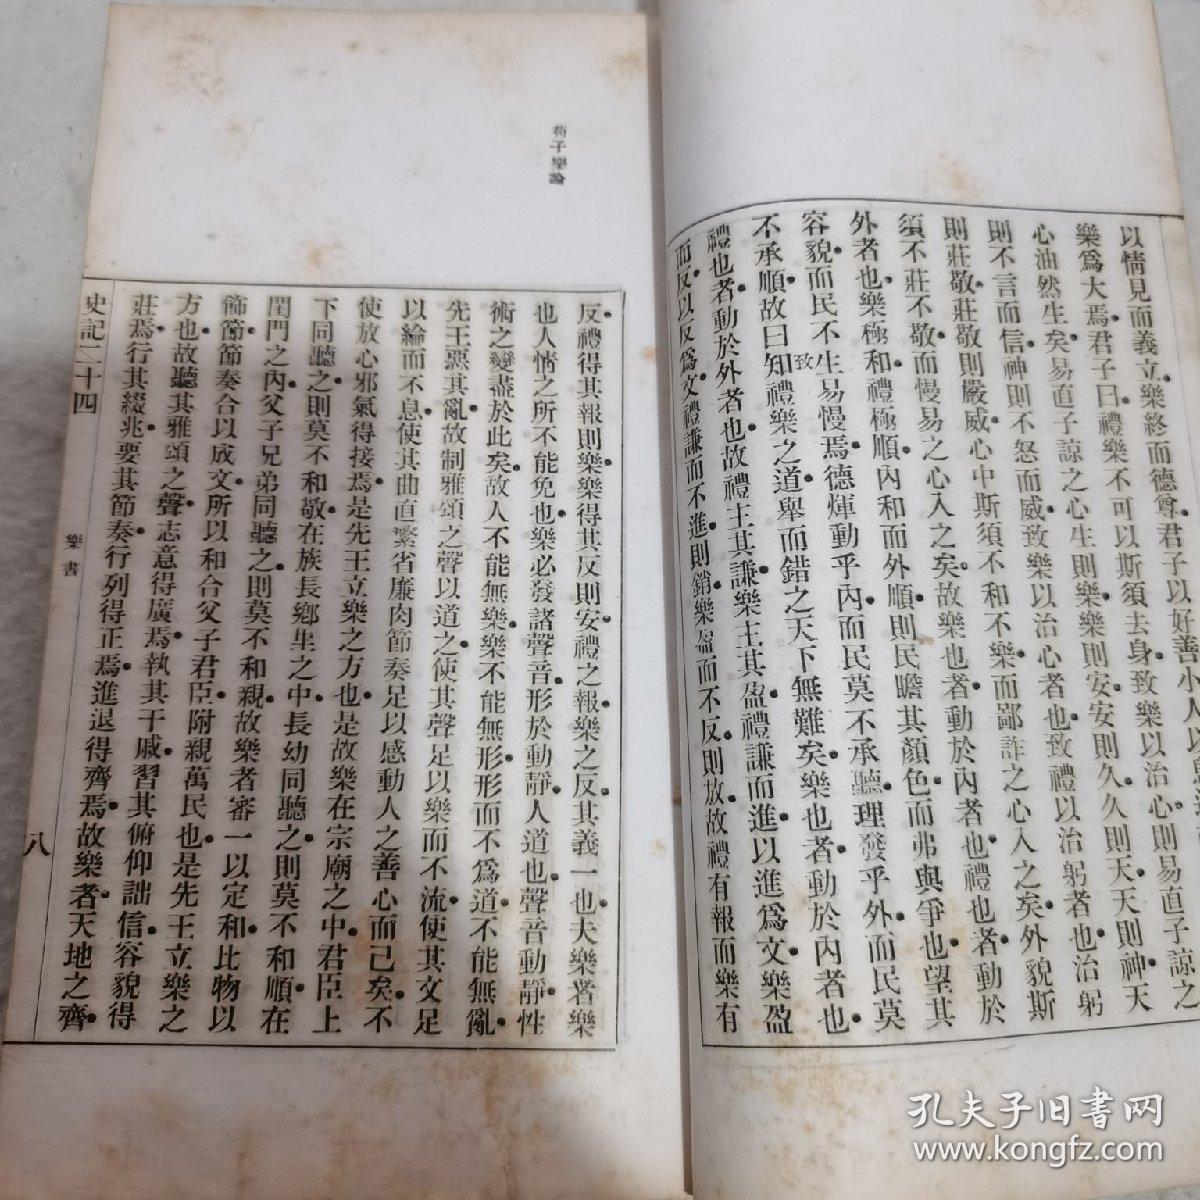 以情見而義立樂終而德尊君子以好善小人以
樂爲大焉君子曰禮樂不可以斯須去身致樂以治心則易直子諒之
心油然生矣易直子諒之心生則樂樂則安安則久久則天天則神天
則不言而信神則不怒而威致樂以治心者也致禮以治躬者也治躬
則莊敬莊敬則嚴威心中斯須不和不樂而鄙詐之心入之矣外貌斯
須不莊不敬而慢易之心入之矣故樂也者動於內者也禮也者動於
外者也樂極和禮極順內和而外順則民瞻其顏色而弗與爭也望其
容貌而民不生易慢焉德煇動乎內而民莫不承聽理發乎外而民莫
不承順故曰知禮樂之道舉而錯之天下無難矣樂也者動於內者也
致
禮也者動於外者也故禮主其謙樂主其盈禮謙而進以進爲文樂盈
而反以反爲文禮謙而不進則銷樂盈而不反則放故禮有報而樂有
荀子樂論
反禮得其報則樂樂得其反則安禮之報樂之反其義一也夫樂者樂
也人情之所不能免也樂必發諸聲音形於動靜人道也聲音動靜性
術之變盡於此矣故人不能無樂樂不能無形形而不爲道不能無亂
先王惡其亂故制雅頌之聲以道之使其聲足以樂而不流使其文足
以綸而不息使其曲直繁省廉肉節奏足以感動人之善心而已矣不
使放心邪氣得接焉是先王立樂之方也是故樂在宗廟之中君臣上
下同聽之則莫不和敬在族長鄉里之中長幼同聽之則莫不和順在
閨門之內父子兄弟同聽之則莫不和親故樂者審一以定和比物以
飾節節奏合以成文所以和合父子君臣附親萬民也是先王立樂之
方也故聽其雅頌之聲志意得廣焉執其干戚習其俯仰詘信容貌得
莊焉行其綴兆要其節奏行列得正焉進退得齊焉故樂者天地之齊
史記二十四
樂書
八
孔夫子旧书网
www.kongfz.com